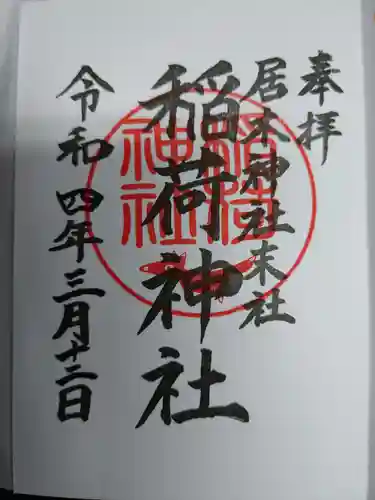 奉拝
居木神社末社
稲荷神社
令和四年三月十二日
稲荷
神社